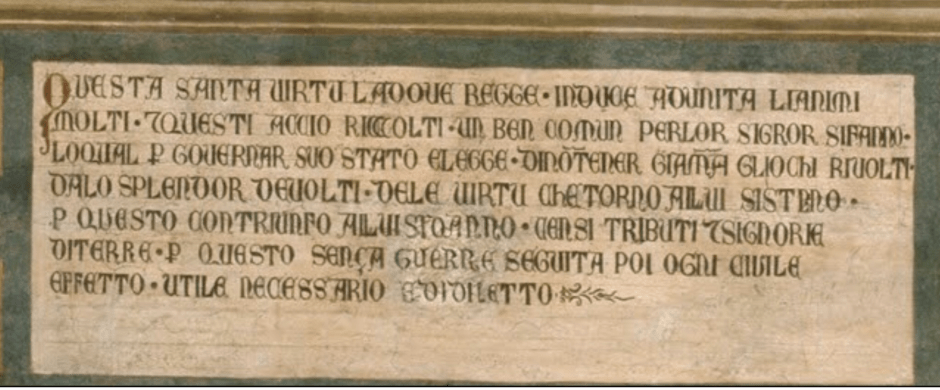 QUESTA SANTA UIRTU LADOUE REGGE · INDUCE ADUNITA LIANIMI
MOLTI · 7QUESTI ACCIO RICCOLTI · UN BEN COMUN PERLOR SIGROR SIFANNO ·
LOQUAL P GOUERNAR SUO STATO ELEGGE · DINŌTENER GIAMĀ GLIOCHI RIUOLTI ·
DALO SPLENDOR DEUOLTI · DELE UIRTU CHETORNO ALLUI SISTANNO ·
P QUESTO CONTRIUNFO ALLUI SIDANNO · CENSI TRIBUTI 7SIGNORIE
DITERRE · P QUESTO SENÇA GUERRE SEGUITA POI OGNI CIUILE
EFFETTO · UTILE NECESSARIO EDIDILETTO ·